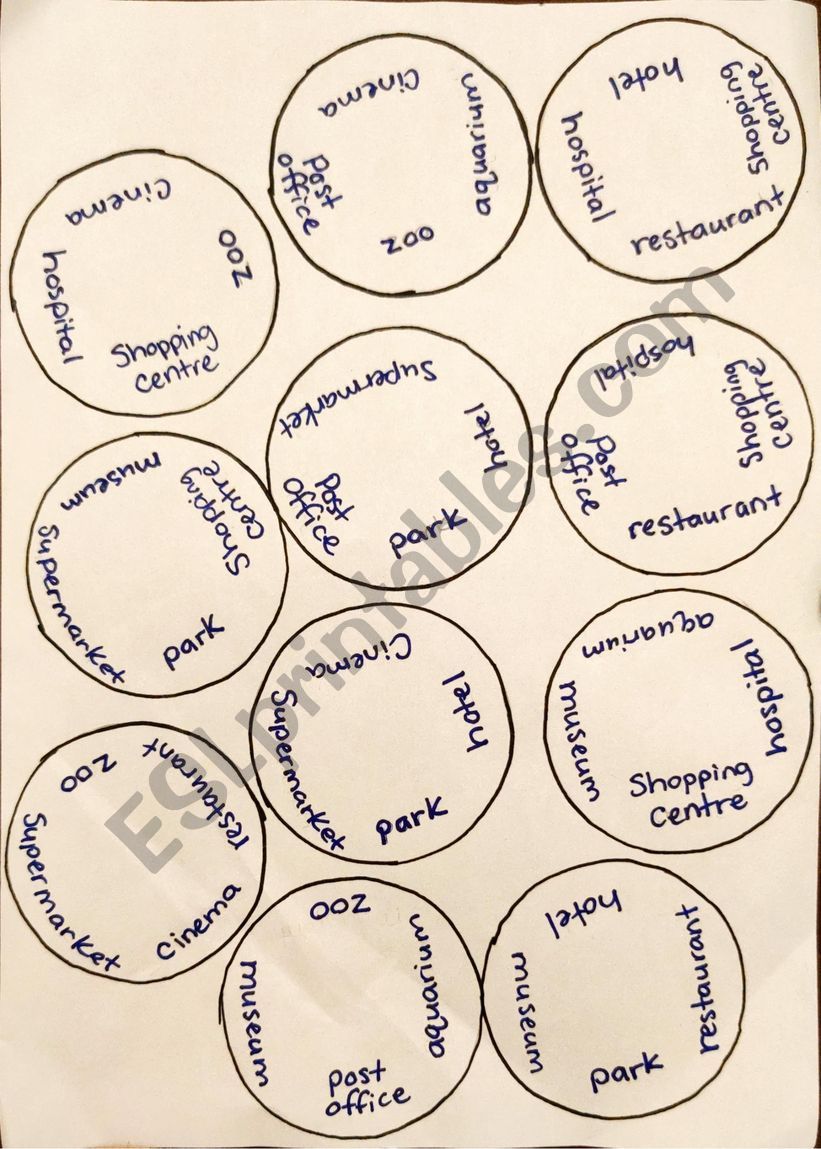 cinema
aquarium
post
office
zoo
hotel
Shopping
centre
hospital
restaurant
cinema
zoo
hospital
Shopping
centre
Supermarket
hotel
post
office
park
hospital
Shopping
centre
post
office
restaurant
museum
Shopping
centre
Supermarket
park
cinema
hotel
Supermarket
park
aquarium
hospital
museum
Shopping
centre
zoo
restaurant
Supermarket
cinema
zoo
aquarium
museum
post
office
hotel
restaurant
museum
park
ESLprintables.com